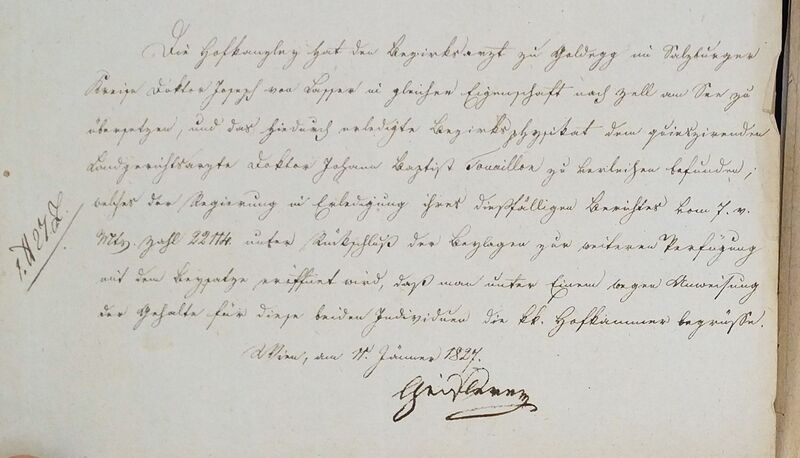 Die Hofkanzley hat den Bezirksarzt zu Goldegg im Salzburger
Kreise Doktor Joseph von Lasser in gleicher Eigenschaft nach Zell am See zu
übersetzen, und das hiedurch erledigte Bezirksphysikat dem quieszirenden
Landgerichtsarzte Doktor Johann Baptist zu verleihen befunden;
welches der Regierung in Erledigung ihres dießfälligen Berichtes vom 7. v.
Mts. Zahl unter Rückschluß der Beylagen zur weiteren Verfügung
mit dem Beysatze eröffnet wird, daß man unter Einem wegen Anweisung
der Gehalte für diese beiden Individuen die kk. Hofkammer begrüsse.
Wien, am Jänner 1827.